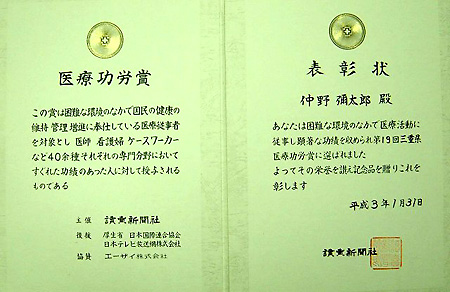 医療功労賞
この賞は困難な環境のなかで国民の健康の
維持管理増進に奉仕している医療従事者
を対象とし 医師 看護婦 ケースワーカー
など40余種それぞれの専門分野において
すぐれた功績のあった人に対して授与される
ものである
主催 讀賣新聞社
後援 厚生省 日本国際連合協会
日本テレビ放送網株式会社
協賛 エーザイ株式会社
表彰状
仲野彌太郎 殿
あなたは困難な環境のなかで医療活動に
従事し顕著な功績を収められ第19回三重県
医療功労賞に選ばれました
よってその栄誉を讃え記念品を贈りこれを
彰します
平成3年1月31日
讀賣新聞社